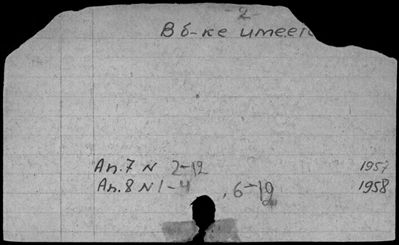 - 2 -
В б-ке имеетс
Ап. 7 N 2-12 1957
Ап. 8 N 1-4, 6-12 1958